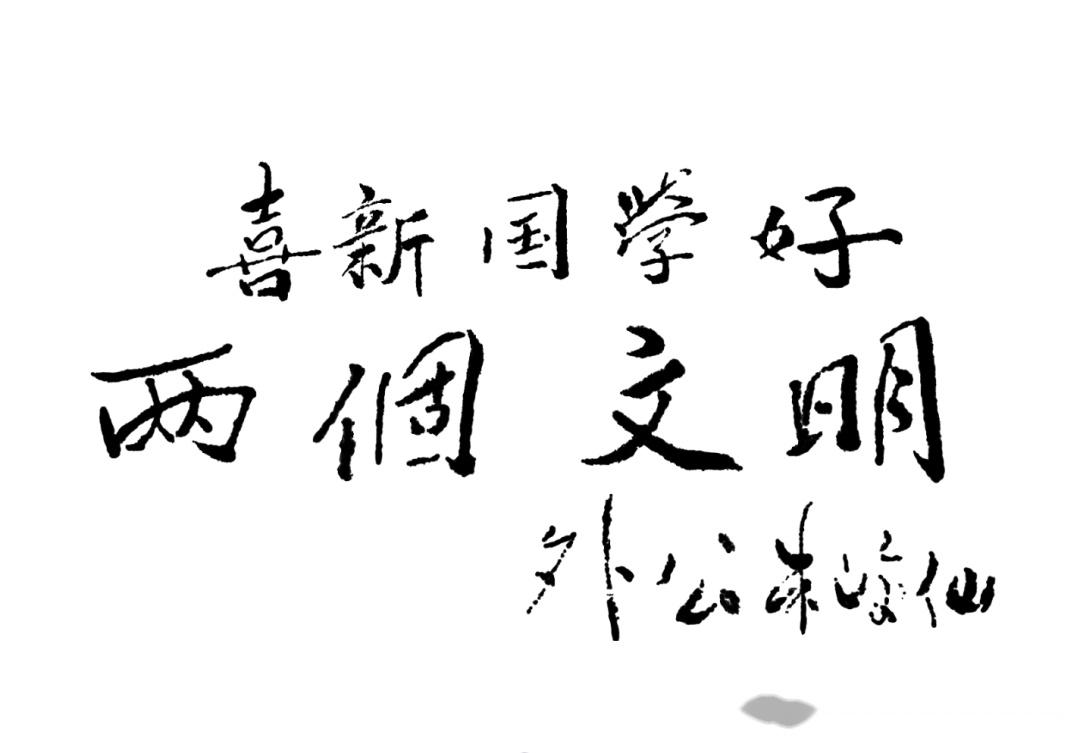 喜新国學好
两個文明
外公朱 仙